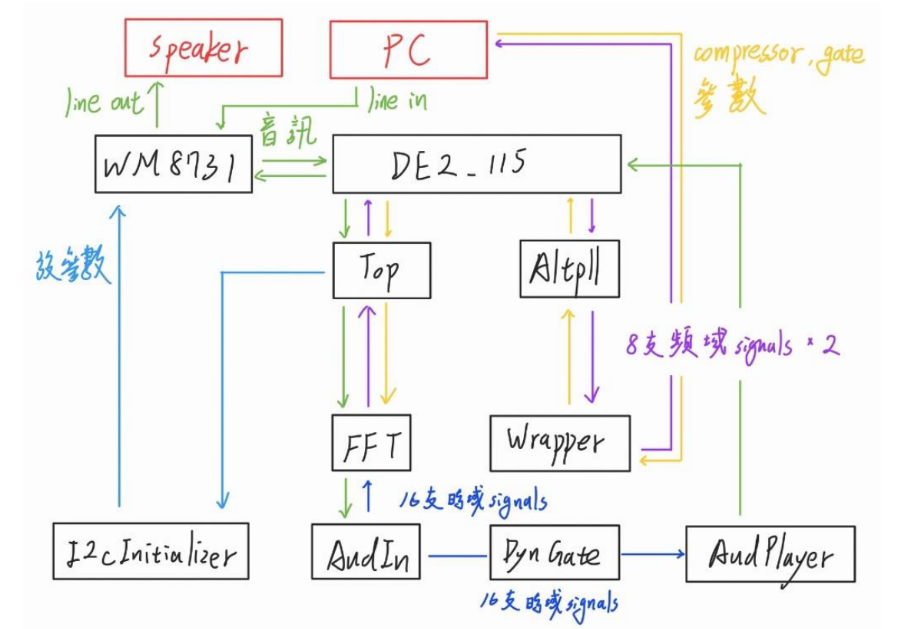 speaker
PC
compressor, gate
參數
line out
line in
音訊
WM8731
DE2_115
放參數
Top
Altpll
8支頻域signals * 2
FFT
Wrapper
16支時域signals
I2cInitializer
AudIn
DynGate
AudPlayer
16支時域signals